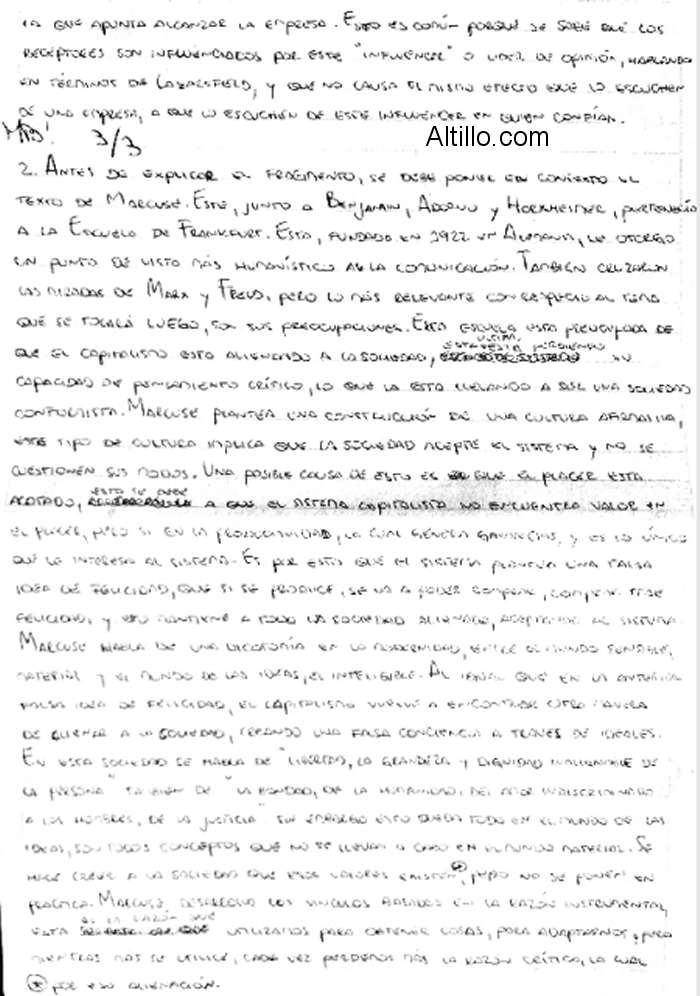 LA QUE APUNTA ALCANZAR LA EMPRESA. ESTO ES COMÚN PORQUE SE SABE QUE LOS
RECEPTORES SON INFLUENCIADOS POR ESTE "INFLUENCER" O LIDER DE OPINIÓN, HABLANDO
EN TÉRMINOS DE LAZARSFELD, Y QUE NO CAUSA EL MISMO EFECTO QUE LO ESCUCHEN
DE UNA EMPRESA, A QUE LO ESCUCHEN DE ESTE INFLUENCER EN QUIEN CONFÍAN.
MB! 3/3
Altillo.com
2. ANTES DE EXPLICAR EL FRAGMENTO, SE DEBE PONER EN CONTEXTO EL
TEXTO DE MARCUSE. ESTE, JUNTO A BENJAMIN, ADORNO Y HORKHEIMER, PERTENECIÓ
A LA ESCUELA DE FRANKFURT. ESTA, FUNDADA EN 1922 EN ALEMANIA, LE OTORGÓ
UN PUNTO DE VISTA MÁS HUMANÍSTICO A LA COMUNICACIÓN. TAMBIÉN CRUZARON
LAS MIRADAS DE MARX Y FREUD, PERO LO MÁS RELEVANTE CON RESPECTO AL TEMA
QUE SE TOCARÁ LUEGO, SON SUS PREOCUPACIONES. ESTA ESCUELA ESTA PREOCUPADA DE
QUE EL CAPITALISMO ESTA ALIENANDO A LA SOCIEDAD, ESTA ULTIMA PERDIENDO SU
CAPACIDAD DE PENSAMIENTO CRÍTICO, LO QUE LA ESTA LLEVANDO A SER UNA SOCIEDAD
CONFORMISTA. MARCUSE PLANTEA UNA CONSTRUCCIÓN DE UNA CULTURA AFIRMATIVA,
ESTE TIPO DE CULTURA IMPLICA QUE LA SOCIEDAD ACEPTE EL SISTEMA Y NO SE
CUESTIONEN SUS MODOS. UNA POSIBLE CAUSA DE ESTO ES QUE EL PLACER ESTA
ACOTADO, ESTO SE DEBE A QUE EL SISTEMA CAPITALISTA NO ENCUENTRA VALOR EN
EL PLACER, PERO SI EN LA PRODUCTIVIDAD, LA CUAL GENERA GANANCIAS, Y ES LO ÚNICO
QUE LE INTERESA AL SISTEMA. ES POR ESTO QUE EL SISTEMA PLANTEA UNA FALSA
IDEA DE FELICIDAD, QUE SI SE PRODUCE, SE VA A PODER COMPRAR, COMPRAR TRAE
FELICIDAD, Y ESO MANTIENE A TODA LA SOCIEDAD ALIENADA, ACEPTANDO AL SISTEMA.
MARCUSE HABLA DE UNA DICOTOMÍA EN LA MODERNIDAD, ENTRE EL MUNDO SENSIBLE,
MATERIAL Y EL MUNDO DE LAS IDEAS, EL INTELIGIBLE. AL IGUAL QUE EN LA ANTERIOR
FALSA IDEA DE FELICIDAD, EL CAPITALISMO VUELVE A ENCONTRAR OTRA MANERA
DE ALIENAR A LA SOCIEDAD, CREANDO UNA FALSA CONCIENCIA A TRAVÉS DE IDEALES.
EN ESTA SOCIEDAD SE HABLA DE "LIBERTAD, LA GRANDEZA Y DIGNIDAD INALIENABLE DE
LA PERSONA" TAMBIEN DE "LA BONDAD, DE LA HUMANIDAD, DEL AMOR INDISCRIMINADO
A LOS HOMBRES, DE LA JUSTICIA" SIN EMBARGO ESTO QUEDA TODO EN EL MUNDO DE LAS
IDEAS, SON TODOS CONCEPTOS QUE NO SE LLEVAN A CABO EN EL MUNDO MATERIAL. SE
HACE CREER A LA SOCIEDAD QUE ESOS VALORES EXISTEN*, PERO NO SE PONEN EN
PRÁCTICA. MARCUSE, DESARROLLA LOS VINCULOS BASADOS EN LA RAZÓN INSTRUMENTAL,
ESTA ES LA RAZÓN QUE UTILIZAMOS PARA OBTENER COSAS, PARA ADAPTARNOS, PERO
MIENTRAS MAS SE UTILICE, CADA VEZ PERDEMOS MÁS LA RAZÓN CRÍTICA, LA CUAL
* POR ESO ALIENACIÓN.